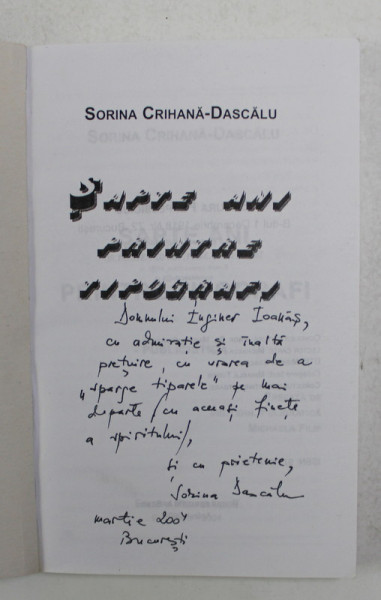 SORINA CRIHANĂ-DASCĂLU
ȘAPTE ANI
PRINTRE
TIPOGRAFI
Domnului Inginer Ioanăș,
cu admirație și înaltă
prețuire, cu urarea de a
„sparge tiparele" pe mai
departe (cu aceeași finețe
a spiritului),
și cu prietenie,
Sorina Dascălu
martie 2004
București